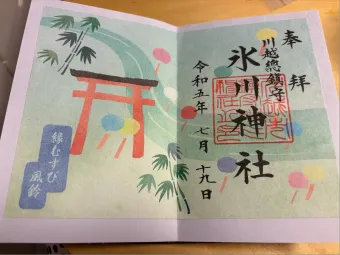 奉拝
川越總鎮守
氷川神社
令和五年 七月 十九日
縁むすび
風鈴